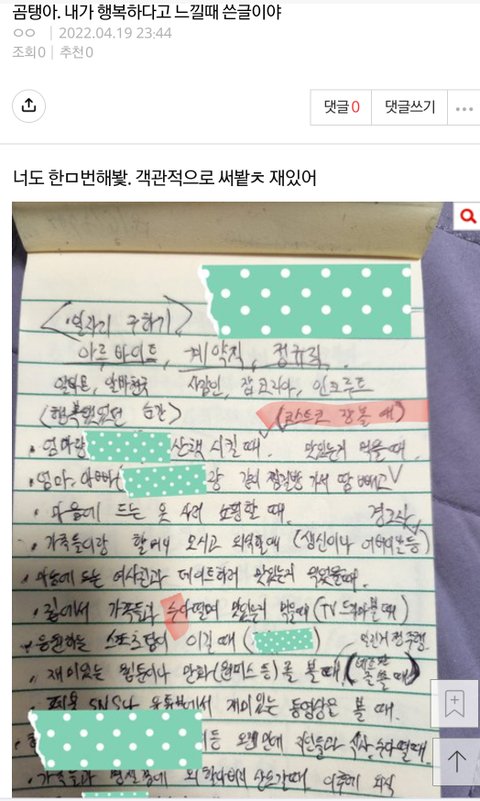 곰탱아. 내가 행복하다고 느낄때 쓴글이야
ㅇㅇ 2022.04.19 23:44
조회 0 추천 0
댓글 0 댓글쓰기
너도 한ㅁ번해봧. 객관적으로 써봩ㅊ 재있어
<일자리 구하기>
아르바이트, 계약직, 정규직.
알바몬, 알바천국 사람인, 잡코리아, 인크루트
<행복했었던 순간> (코스트코 장볼 때)
· 엄마랑 산책 시킬 때. 맛있는거 먹을 때.
· 엄마, 아빠 랑 같이 찜질방 가서 땀 빼고
· 마음에 드는 옷 사러 쇼핑할 때.
· 가족들이랑 할머니 모시고 외식할때 (생신이나 어버이날 등)
· 마음에 드는 여사친과 데이트하러 맛있는거 먹었을때.
· 집에서 가족들과 수다떨며 맛있는거 먹을때 (TV 드라마 볼 때)
· 응원하는 스포츠팀이 이길 때
· 재미있는 웹툰이나 만화 (원피스 등)를 볼 때.
SNS나 유튜브에서 재미있는 동영상을 볼 때.
수다떨때.
· 가족들과